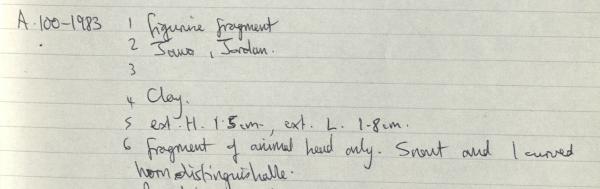 A.100-1983 1 figurine fragment
2 Jawa, Jordan.
3
4 Clay.
5 ext. H. 1.5cm, ext. L. 1.8cm.
6 fragment of animal head only. Snout and 1 curved
horn distinguishable.